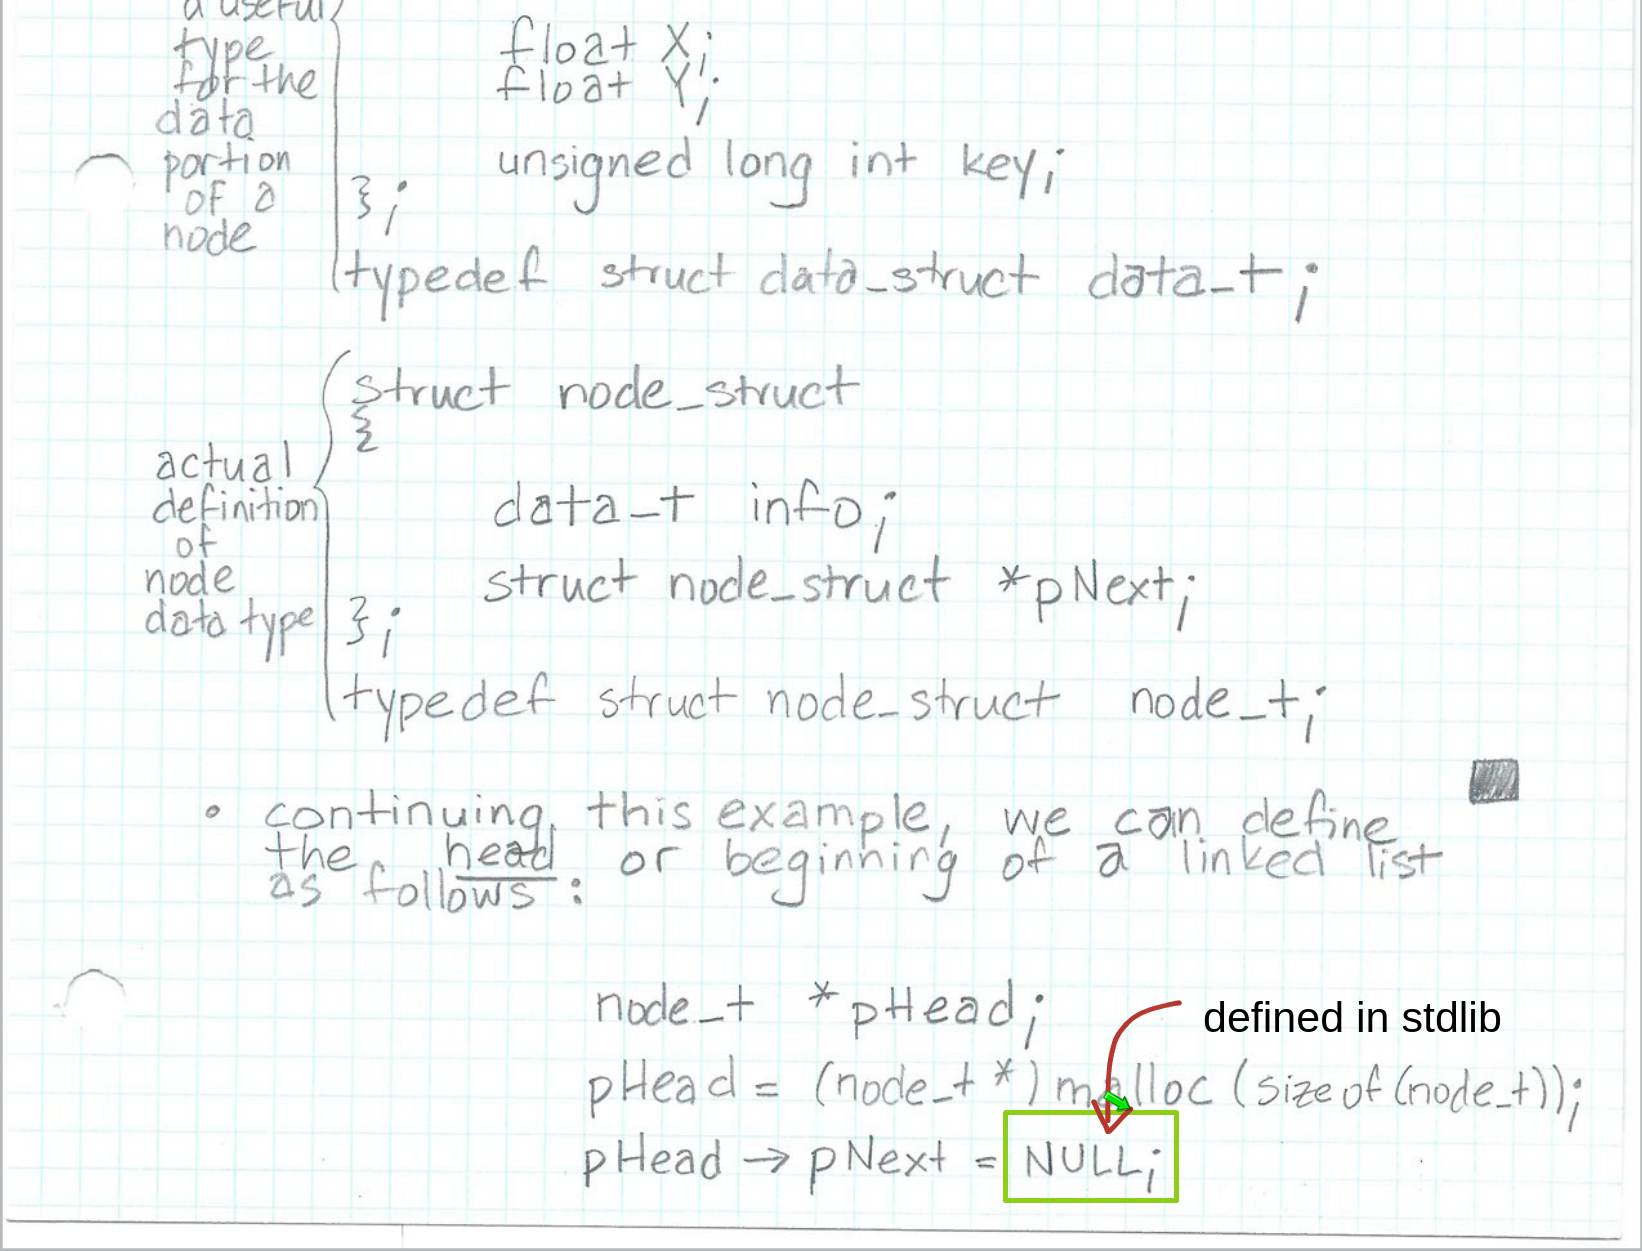 a useful
type
for the
data
portion
of a
node
float X;
float Y;
unsigned long int key;
};
typedef struct data_struct data_t;
struct node_struct
{
actual
definition
of
node
data type
data_t info;
struct node_struct *pNext;
};
typedef struct node_struct node_t;
• continuing this example, we can define
the head or beginning of a linked list
as follows:
node_t *pHead;
defined in stdlib
pHead = (node_t *) malloc (sizeof (node_t));
pHead → pNext = NULL;